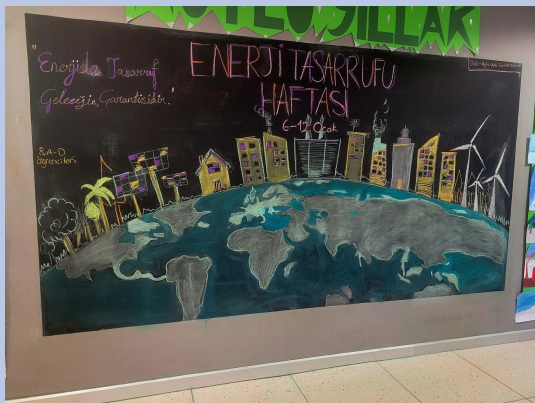 MUTLU YILLAR
"Enerjide Tasarruf
Geleceğin Garantisidir."
ENERJİ TASARRUFU
HAFTASI
6-12 Ocak
8.A-D
öğrencileri